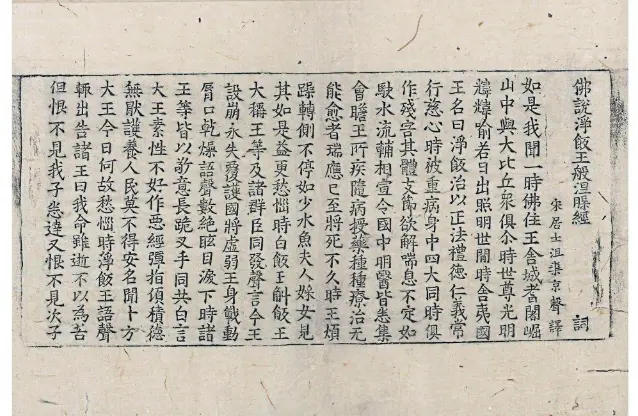 佛說淨飯王般涅槃經
詞
宋居士沮渠京聲譯
如是我聞一時佛住王舍城耆闍崛
山中與大比丘衆俱尒時世尊光明
暐暐喻若日出照明世間時舍夷國
王名曰淨飯治以正法禮德仁義常
行慈心時被重病身中四大同時俱
作殘害其體支節欲解喘息不定如
駛水流輔相宣令國中明醫皆悉集
會瞻王所疾隨病授藥種種療治無
能愈者瑞應已至將死不久時王煩
躁轉側不停如少水魚夫人婇女見
其如是益更愁惱時白飯王斛飯王
大稱王等及諸群臣同發聲言今王
設崩永失覆護國將虛弱王身戰動
脣口乾燥語聲數絕眩目淚下時諸
王等皆以敬意長跪叉手同共白言
大王素性不好作惡經彈指頃積德
無猒護養人民莫不得安名聞十方
大王今日何故愁惱時淨飯王語聲
輒出告諸王曰我命雖逝不以為苦
但恨不見我子悉達又恨不見次子